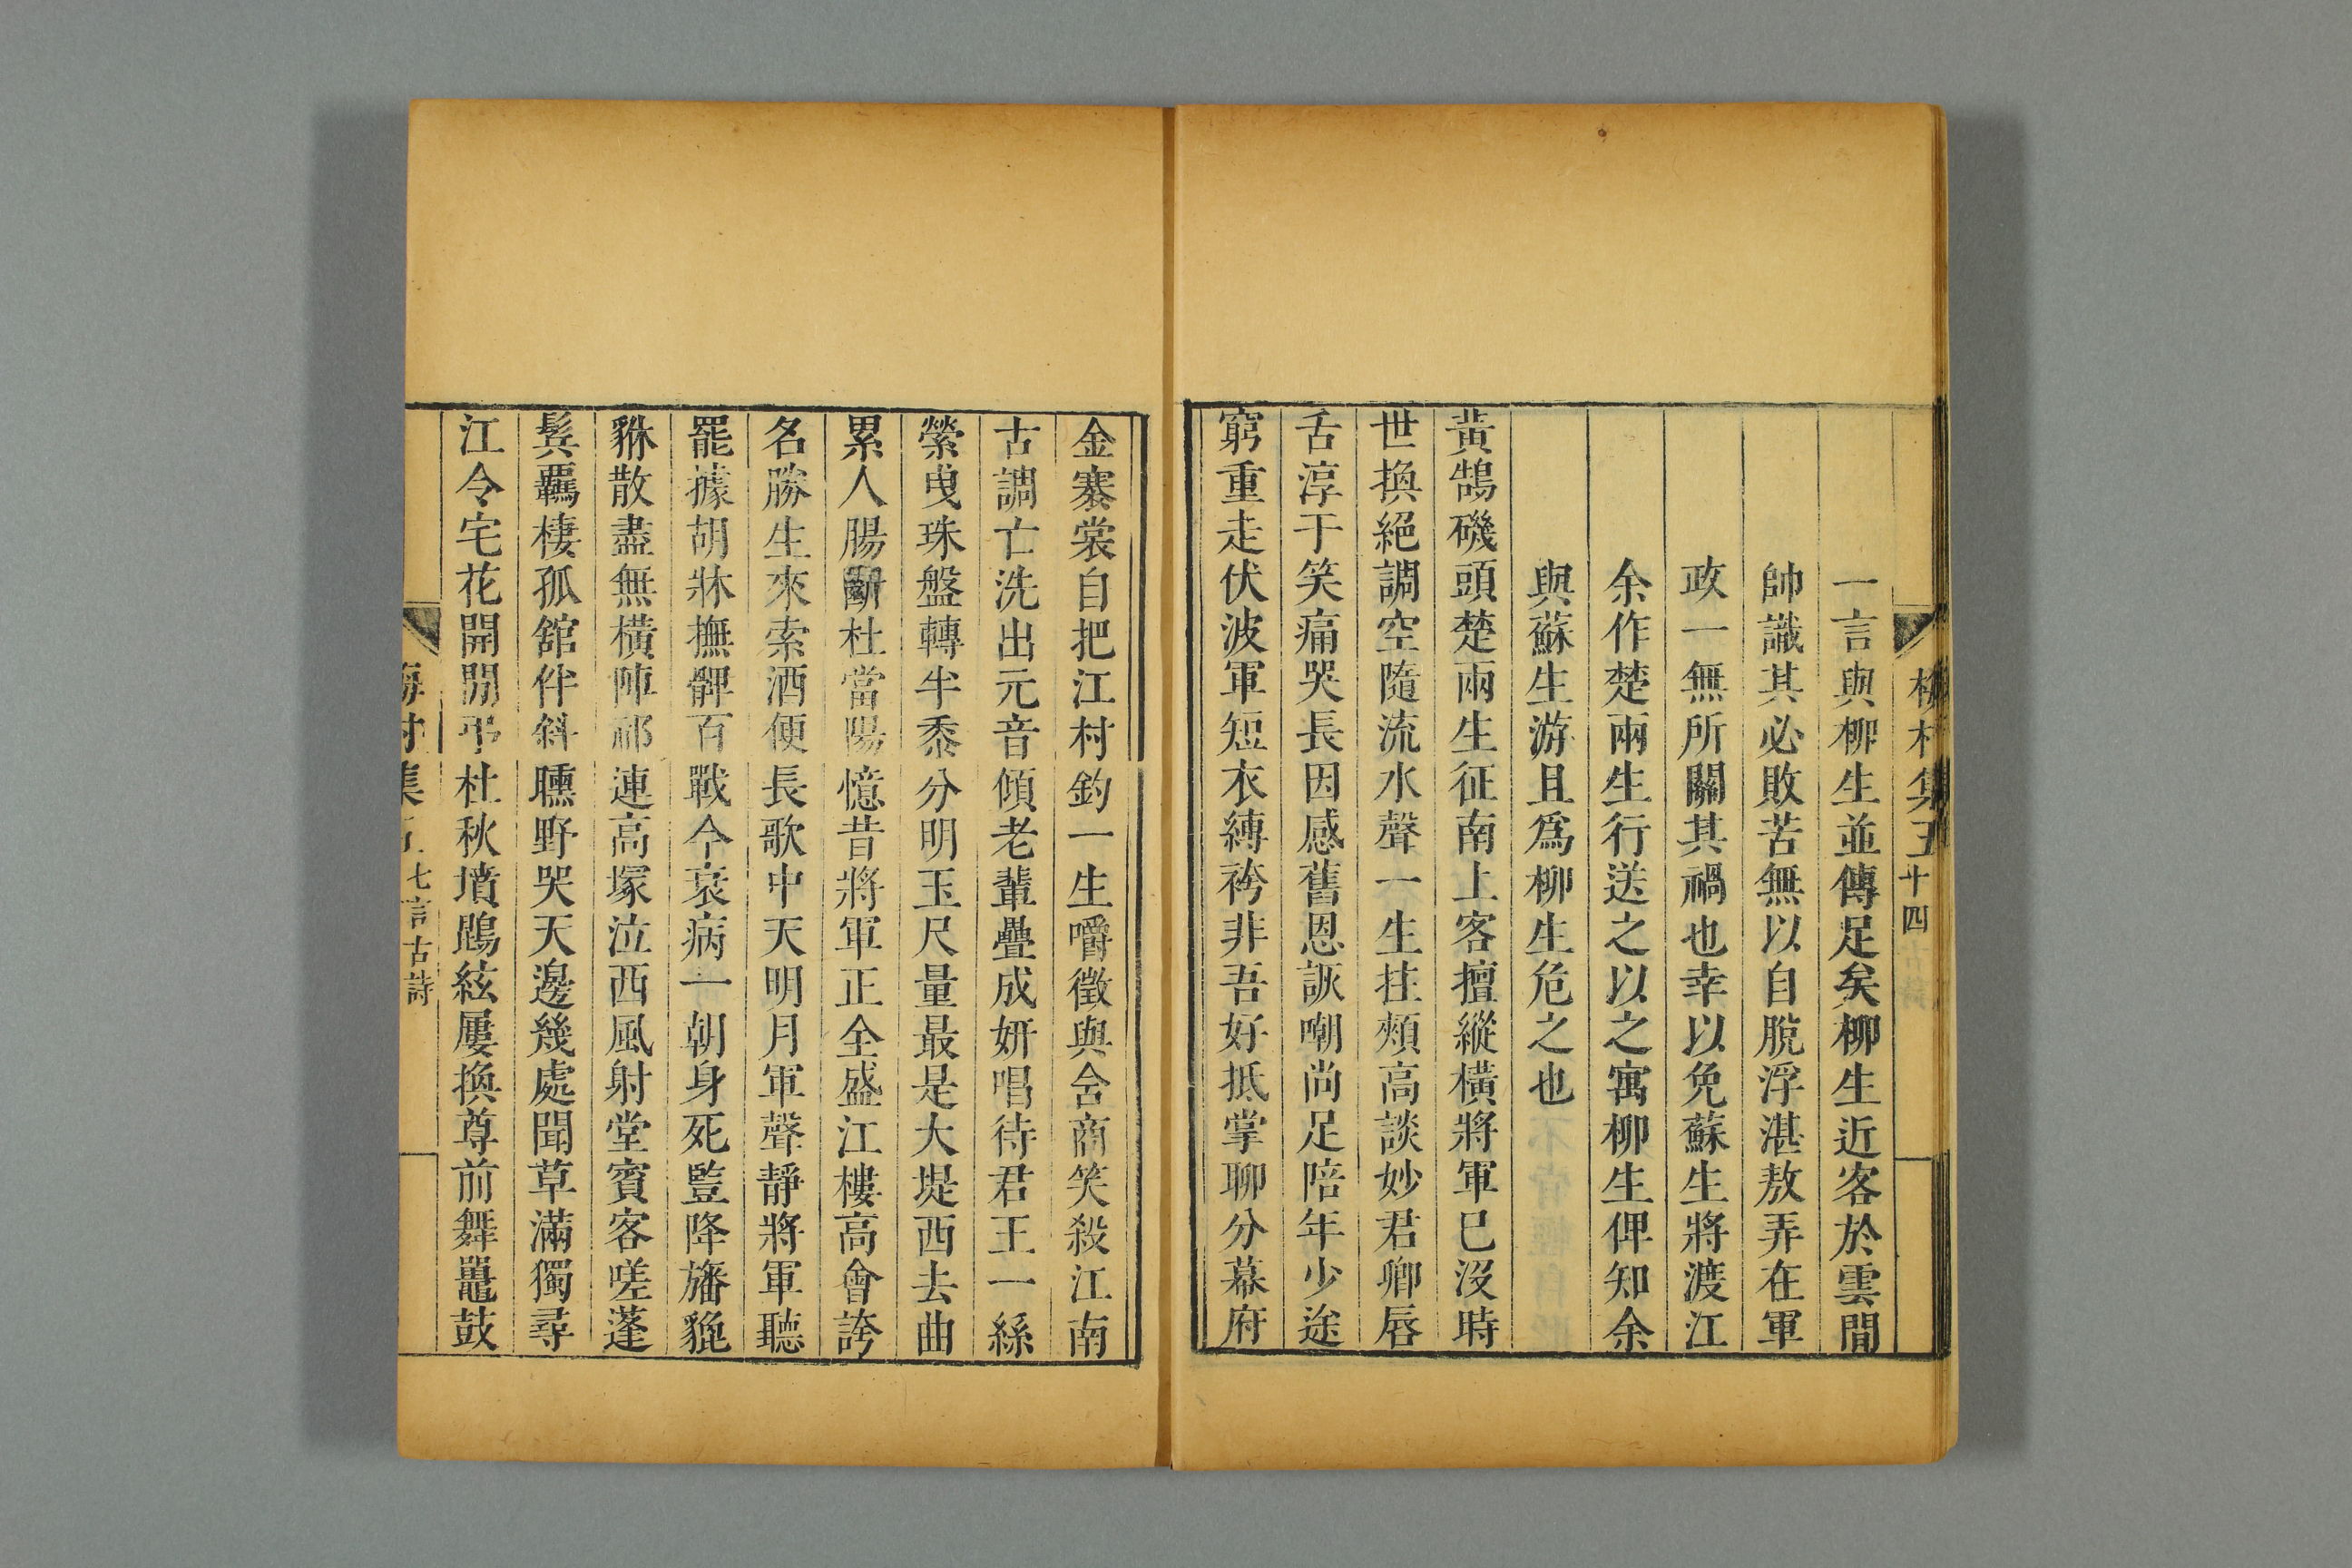 梅村集五
十四
一言與柳生並傳足矣柳生近客於雲間
帥識其必敗苦無以自脫浮湛敖弄在軍
政一無所關其禍也幸以免蘇生將渡江
余作楚兩生行送之以之寓柳生俾知余
與蘇生游且爲柳生危之也
黃鵠磯頭楚兩生征南上客擅縱橫將軍已沒時
世換絕調空隨流水聲一生拄頰高談妙君卿唇
舌淳于笑痛哭長因感舊恩詼嘲尚足陪年少途
窮重走伏波軍短衣縛袴非吾好抵掌聊分幕府
金褰裳自把江村釣一生嚼徵與含商笑殺江南
古調亡洗出元音傾老輩疊成妍唱待君王一絲
縈曳珠盤轉半黍分明玉尺量最是大堤西去曲
累人腸斷杜當陽憶昔將軍正全盛江樓高會誇
名勝生來索酒便長歌中天明月軍聲靜將軍聽
罷據胡牀撫髀百戰今衰病一朝身死豎降旛貔
貅散盡無橫陣祁連高塚泣西風射堂賓客嗟蓬
鬂羈棲孤舘伴斜曛野哭天邊幾處聞草滿獨尋
江令宅花開閒弔杜秋墳鵾絃屢換尊前舞鼉鼓
梅村集五
七言古詩